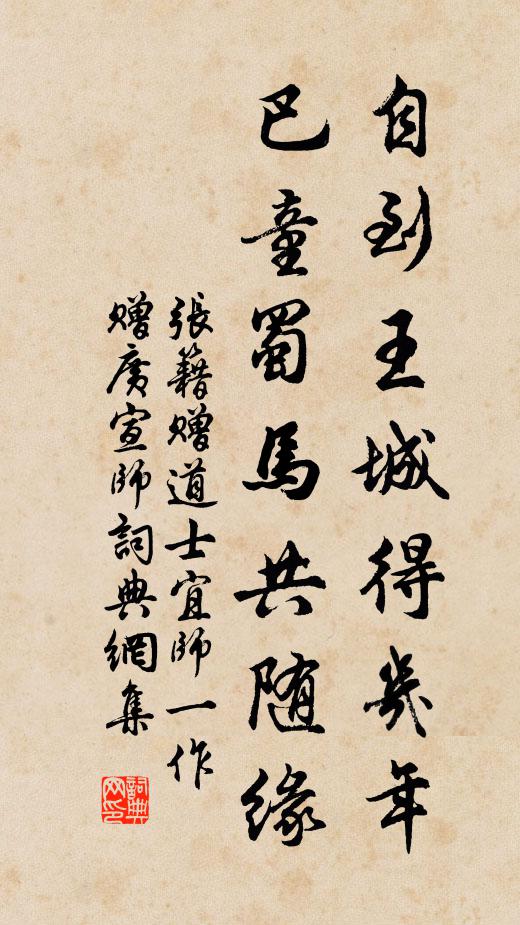 自到王城得幾年
巴童蜀馬共随緣
張籍赠道士宜師一作
赠廣宣師詞典網集
詞典网印